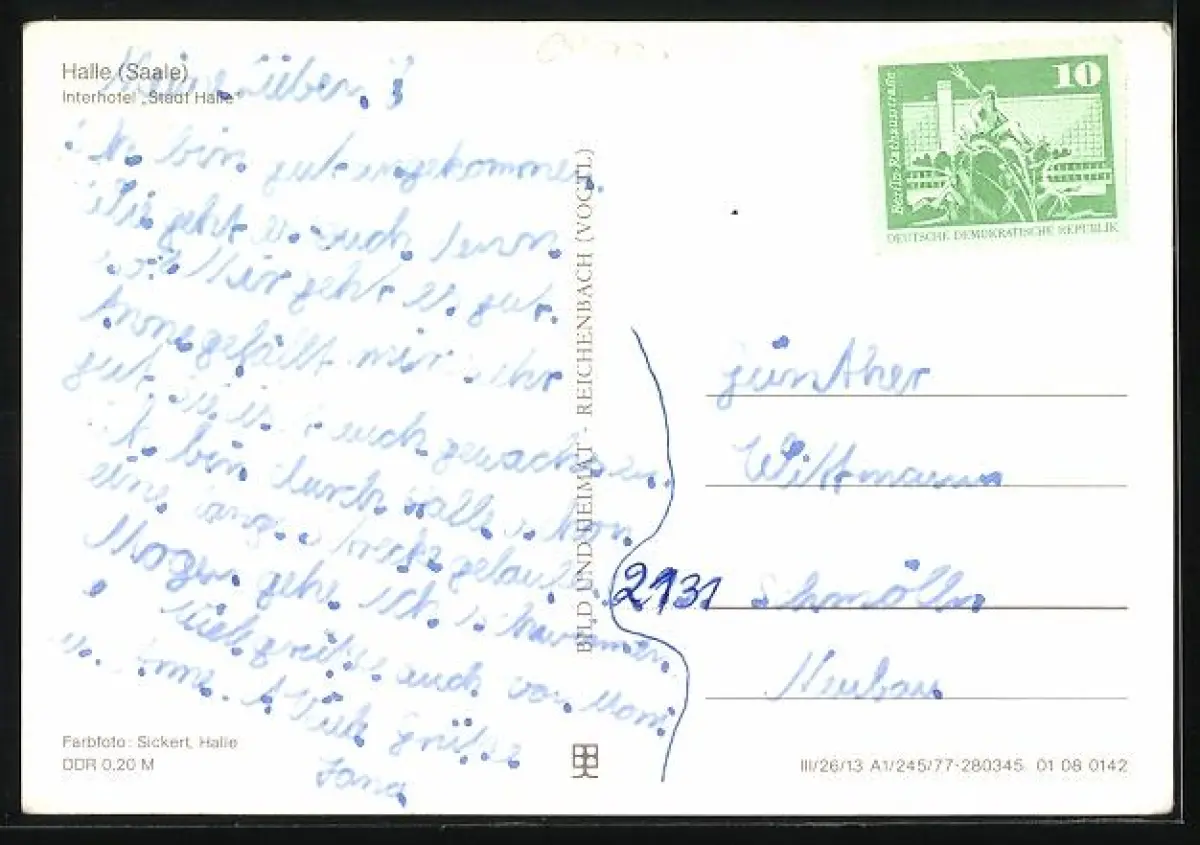 Halle (Saale)
Interhotel „Stadt Halle"
Meine Lieben!
Ich bin gut angekommen.
Wie geht es euch denn
so? Mir geht es gut.
Anne gefällt mir sehr
gut. Sie ist auch gewachsen.
Ich bin durch Halle schon
eine lange Strecke gelaufen.
Mogen gehe ich schwimmen.
Viele grüße auch von Moni
u. Anne. Viele Grüße
Jana
Farbfoto: Sickert, Halle
DDR 0,20 M
BILD UND HEIMAT - REICHENBACH (VOGTL)
10
Berlin, Rathausstraße
DEUTSCHE DEMOKRATISCHE REPUBLIK
Günther
Wittmann
Schmölln
Neubau
III/26/13 A1/245/77-280345 01 08 0142